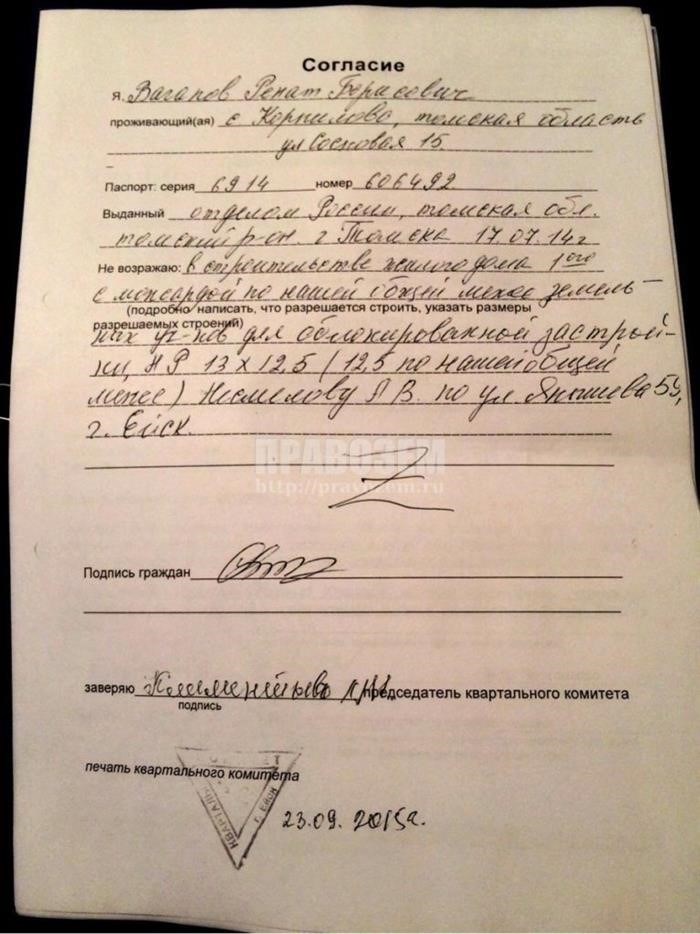 Согласие
Я, Вагапов Ренат Борисович
проживающий(ая) с Корнилово, томская область
ул Сосновая 15.
Паспорт: серия 6914 номер 606492
Выданный отделом России, томская обл.
томский р-он. г Томска 17.07.14г
Не возражаю: в строительстве жилого дома 1ого
с мансардой по нашей общей меже земель-
(подробно написать, что разрешается строить, указать размеры
разрешаемых строений)
ных уч-ков для облокированной застрой-
ки, НР 13 х 12,5 (12,5 по нашей общей
меже) Несмелову А В. по ул Янышева 59,
г. Ейск.
ПРАВОЗЕМ
http://pravozem.ru
Подпись граждан
заверяю Климентьева председатель квартального комитета
подпись
печать квартального комитета
КВАРТАЛЬ г. Ейск
23.09.2015г.